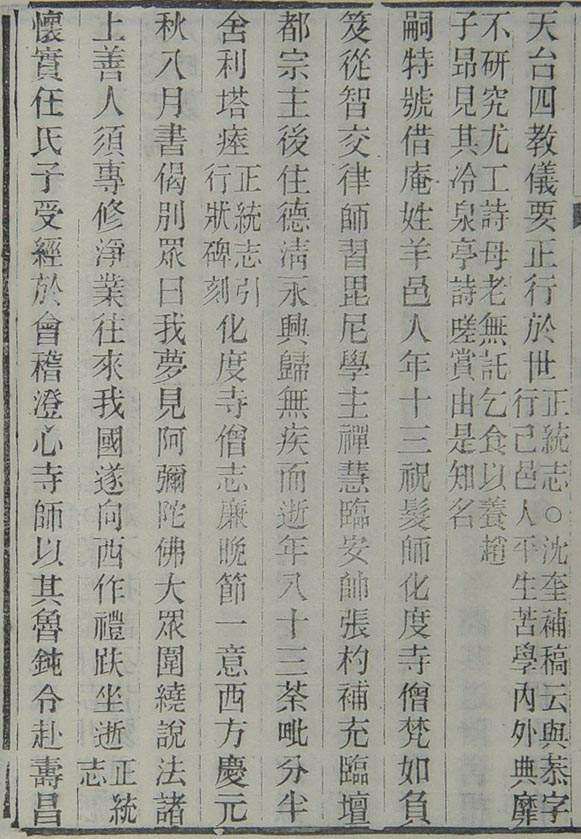 天台四教儀要正行於世正統志○沈奎補稿云與恭字
行己邑人平生苦學內外典靡
不研究尤工詩母老無託乞食以養趙
子昂見其冷泉亭詩嗟賞由是知名
嗣特號借庵姓羊邑人年十三祝髮師化度寺僧梵如負
笈從智交律師習毘尼學主禪慧臨安帥張杓補充臨壇
都宗主後住德淸永興歸無疾而逝年八十三荼毗分半
舍利塔瘞正統志引行狀碑刻化度寺僧志廉晚節一意西方慶元
秋八月書偈別眾曰我夢見阿彌陀佛大眾圍繞說法諸
上善人須專修淨業往來我國遂向西作禮趺坐逝正統志
懷實任氏子受經於會稽澄心寺師以其魯鈍令赴壽昌